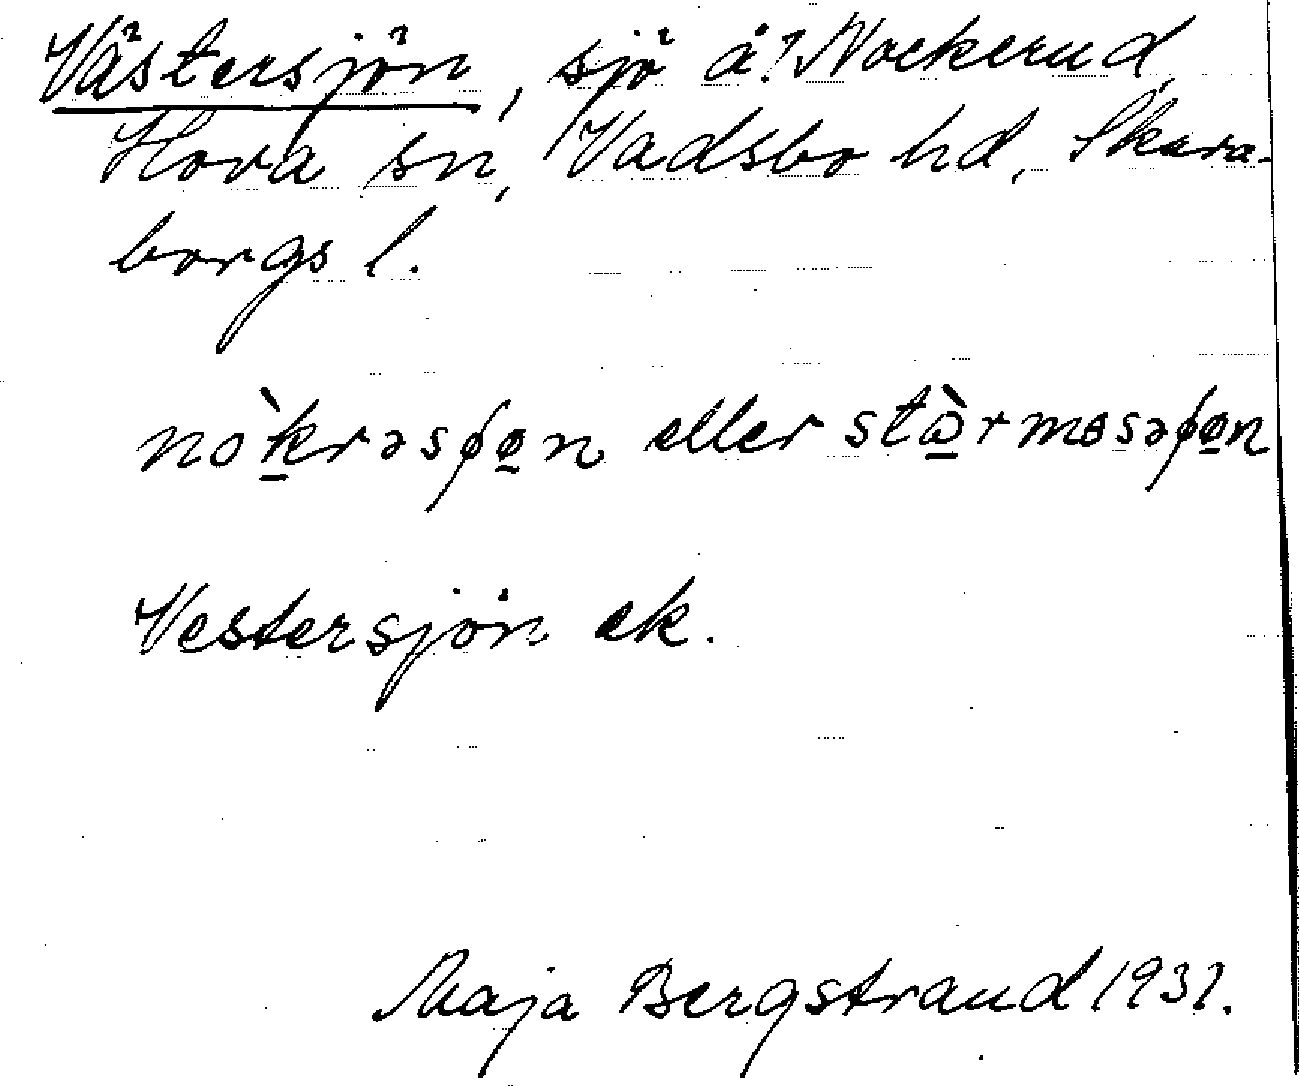 Västersjön, sjö å? Nockerud,
Hova sn, Vadsbo hd, Skara-
borgs l.
nòkrəsʃøn eller stὼrmosəʃøn
Vestersjön ek.
Maja Bergstrand 1931.